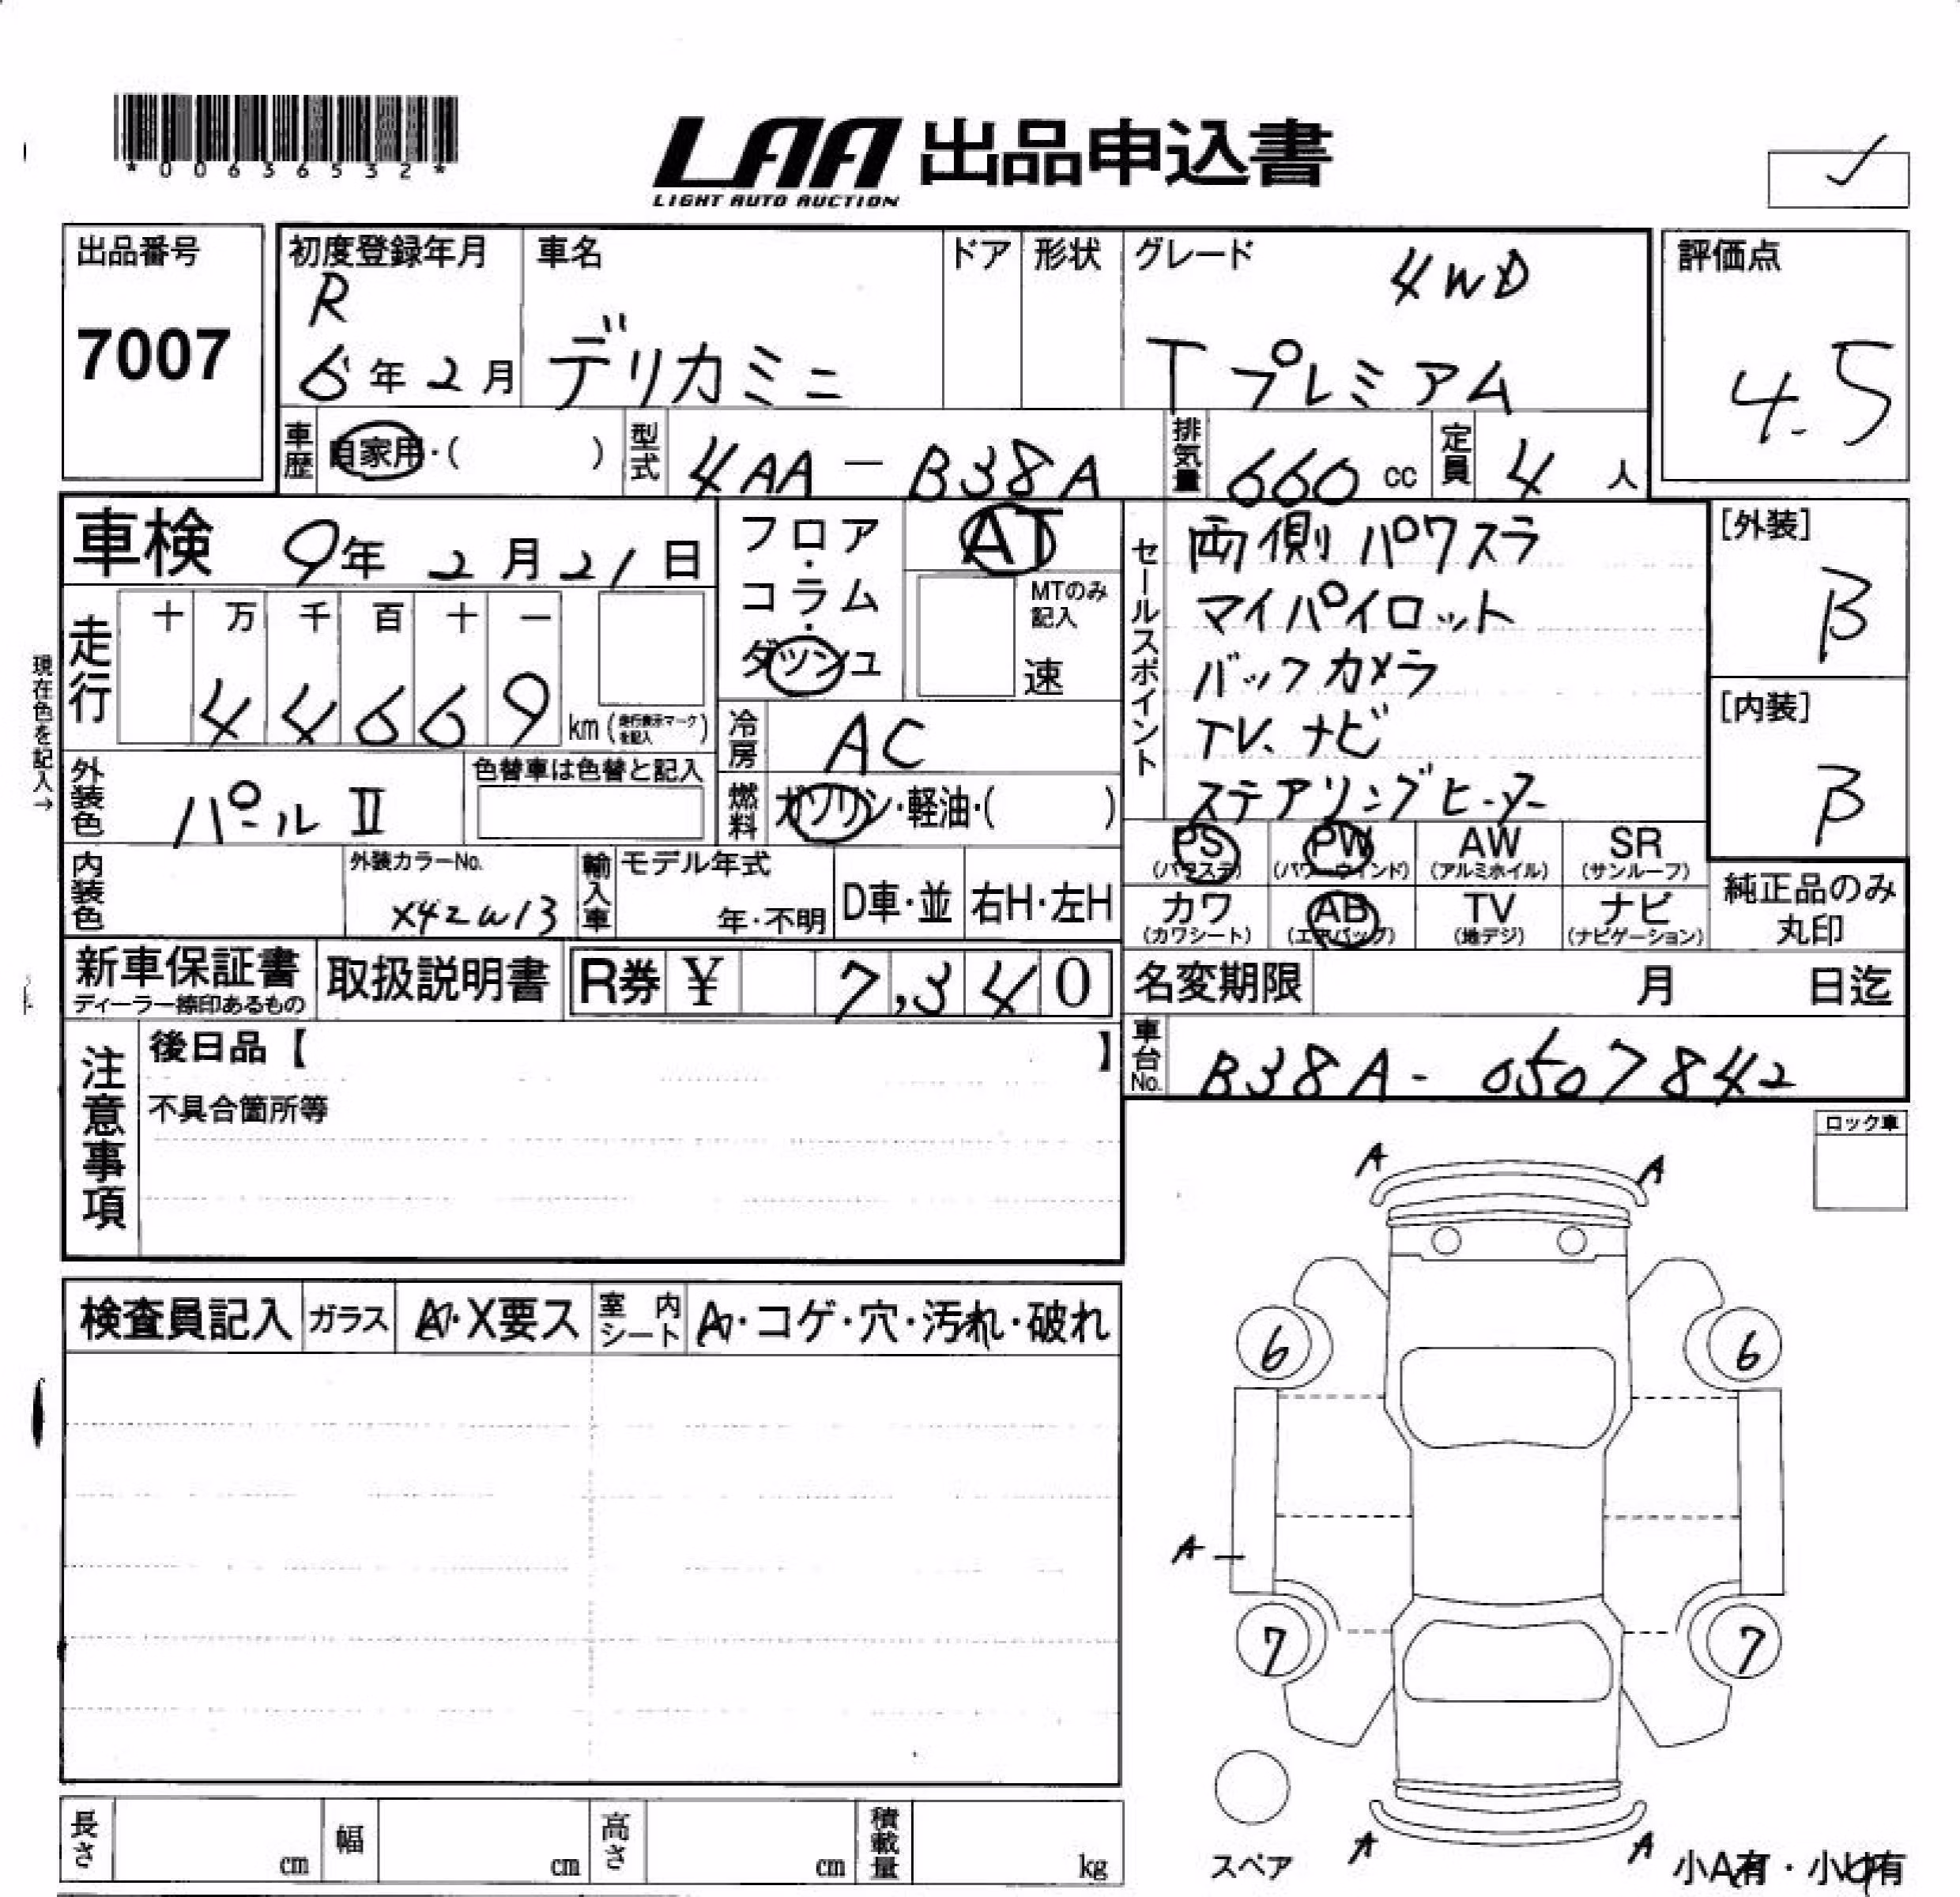 *00636532*
LAA 出品申込書
LIGHT AUTO AUCTION
出品番号
7007
初度登録年月
R
6年2月
車名
デリカミニ
ドア
形状
グレード
4WD
Tプレミアム
評価点
4.5
車歴
自家用・( )
型式
4AA-B38A
排気量
660 cc
定員
4 人
車検 9年 2月 21日
フロア・コラム・ダッシュ
AT
MTのみ記入
速
セールスポイント
両側パワスラ
マイパイロット
バックカメラ
TV. ナビ
ステアリングヒーター
[外装]
B
[内装]
B
現在色を記入→
走行
十 万 千 百 十 一
4 4 6 6 9
km (走行表示マークを記入)
冷房
AC
外装色
パール II
色替車は色替と記入
燃料
ガソリン・軽油・( )
内装色
外装カラーNo.
X42W13
輸入車
モデル年式
年・不明
D車・並
右H・左H
PS
(パワステ)
PW
(パワーウィンド)
AW
(アルミホイル)
SR
(サンルーフ)
カワ
(カワシート)
AB
(エアバッグ)
TV
(地デジ)
ナビ
(ナビゲーション)
純正品のみ
丸印
新車保証書
ディーラー捺印あるもの
取扱説明書
R券 ¥ 7,340
名変期限 月 日迄
車台No.
B38A-0507842
注意事項
後日品【 】
不具合箇所等
ロック車
検査員記入
ガラス
・X要ス
室内シート
・コゲ・穴・汚れ・破れ
A
A
6
6
A
7
7
A
A
スペア
小A有・小U有
長さ cm
幅 cm
高さ cm
積載量 kg